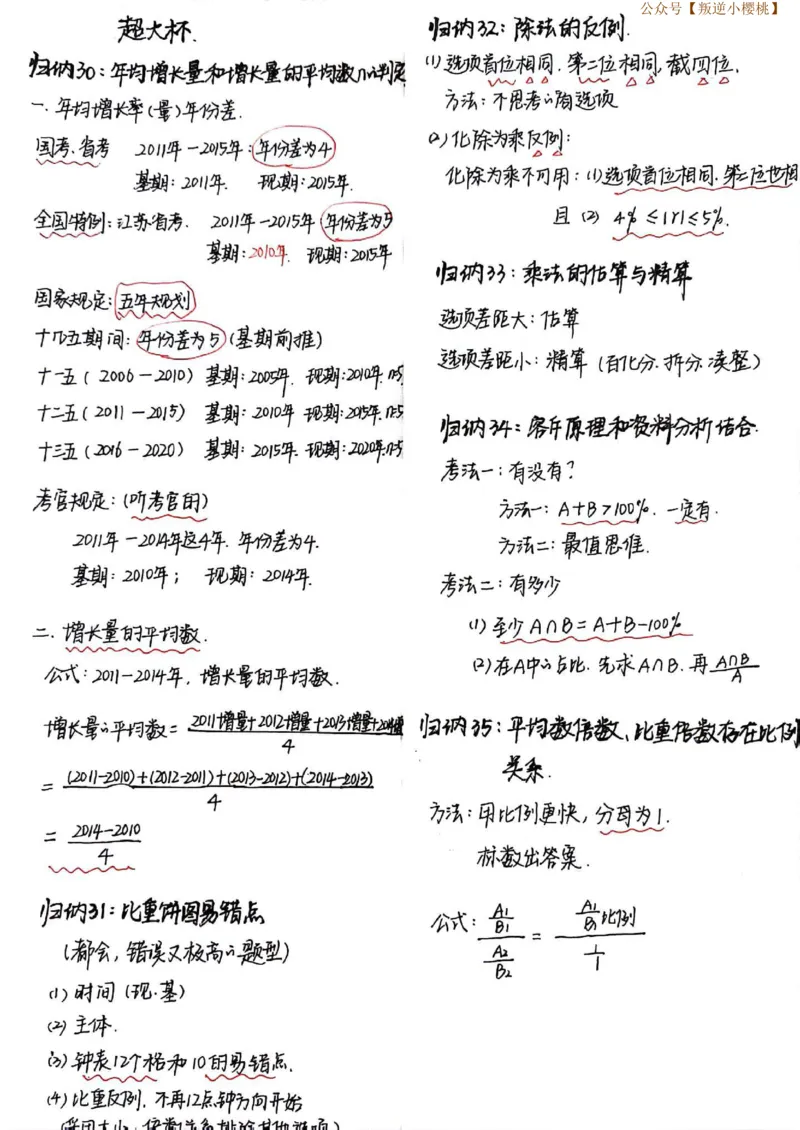 公众号【叛逆小樱桃】
超大杯
归纳30：年均增长量和增长量的平均数
一、年均增长率(量)年份差.
国考、省考 2011年-2015年：年份差为4
基期：2011年. 现期：2015年.
全国特例：江苏省考. 2011年-2015年 年份差为5
基期：2010年. 现期：2015年
国家规定：五年规划
十几五期间：年份差为5 (基期前推)
十一五 (2006-2010) 基期：2005年. 现期：2010年.
十二五 (2011-2015) 基期：2010年 现期：2015年.
十三五 (2016-2020) 基期：2015年. 现期：2020年.
考官规定：(听考官的)
2011年-2014年这4年. 年份差为4.
基期：2010年； 现期：2014年.
二、增长量的平均数.
公式：2011-2014年，增长量的平均数.
增长量的平均数= 2011增量+2012增量+2013增量+2014增量
4
= (2011-2010)+(2012-2011)+(2013-2012)+(2014-2013)
4
= 2014-2010
4
归纳31：比重饼图易错点
(都会，错误又极高的题型)
(1) 时间 (现.基)
(2) 主体.
(3) 钟表12个格和10的易错点.
(4) 比重反例. 不再12点钟方向开始
归纳32：除法的反例.
(1) 选项首位相同. 第二位相同，截四位.
方法：不思考的狗选项
(2) 化除为乘反例：
化除为乘不可用：(1)选项首位相同.第二位也相
且 (2) 4% ≤|r|≤5%.
归纳33：乘法的估算与精算
选项差距大：估算
选项差距小：精算 (百化分.拆分.凑整)
归纳34：容斥原理和资料分析结合.
考法一：有没有？
方法一：A+B>100%. 一定有.
方法二：最值思维.
考法二：有多少
(1) 至少A∩B=A+B-100%
(2) 在A中的占比. 先求A∩B. 再 A∩B
A
归纳35：平均数倍数、比重倍数存在比例
关系.
方法：用比例更快，分母为1.
标数出答案.
公式： A1/B1 = A1/B1比例
A2/B2 1/1